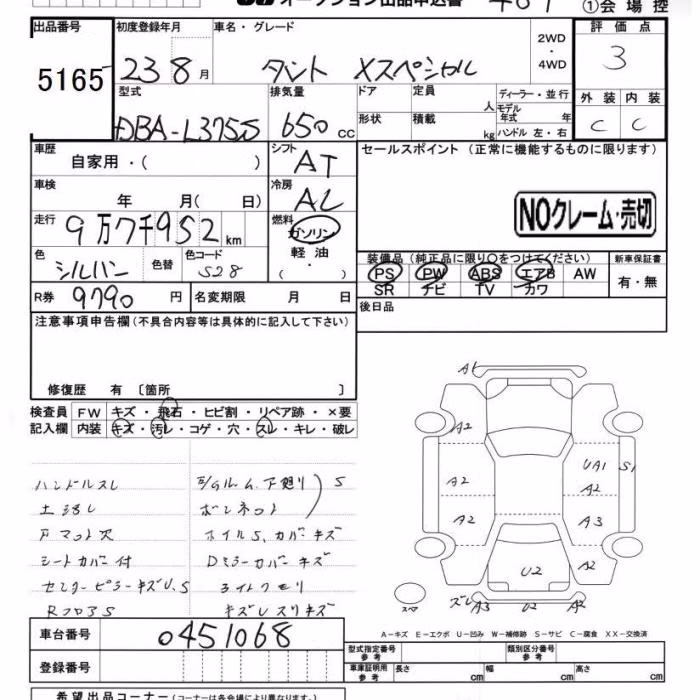 オークション出品申込書
①会場控
出品番号
5165
初度登録年月
23 8月
車名・グレード
タント Xスペシャル
2WD
・
4WD
評価点
3
型式
DBA-L375S
排気量
650 cc
ドア
定員
人
ディーラー・並行
モデル
年式 年
形状
積載
kg
ハンドル 左・右
外装 内装
C C
車歴
自家用・( )
シフト
AT
セールスポイント (正常に機能するものに限ります)
車検
年 月( 日)
冷房
AC
NOクレーム・売切
走行
9万7千952km
燃料
ガソリン
軽油
・
( )
色
シルバー
色替
色コード
S28
装備品 (純正品に限り○をつけてください)
PS PW ABS エアB AW
SR ナビ TV カワ
新車保証書
有・無
R券
9790円
名変期限 月 日
後日品
注意事項申告欄 (不具合内容等は具体的に記入して下さい)
修復歴 有 〔箇所 〕
検査員 FW キズ・飛石・ヒビ割・リペア跡・×要
記入欄 内装 キズ・汚レ・コゲ・穴・スレ・キレ・破レ
ハンドルスレ
下廻り S
ボンネット
ホイルS、カバーキズ
シートカバー付
Dミラーカバーキズ
センターピラーキズU、S
ライトクモリ
RフロアS
キズレスリキズ
A1
A2
UA1 S1
A2 A2
A2 A3
U2
A3 U2 A2
スペア
A-キズ E-エクボ U-凹み W-補修跡 S-サビ C-腐食 XX-交換済
車台番号
0451068
登録番号
型式指定番号
参考
類別区分番号
参考
車庫証明用
参考
長さ cm 幅 cm 高さ cm
希望出品コーナー (コーナー名は各会場により異なります)